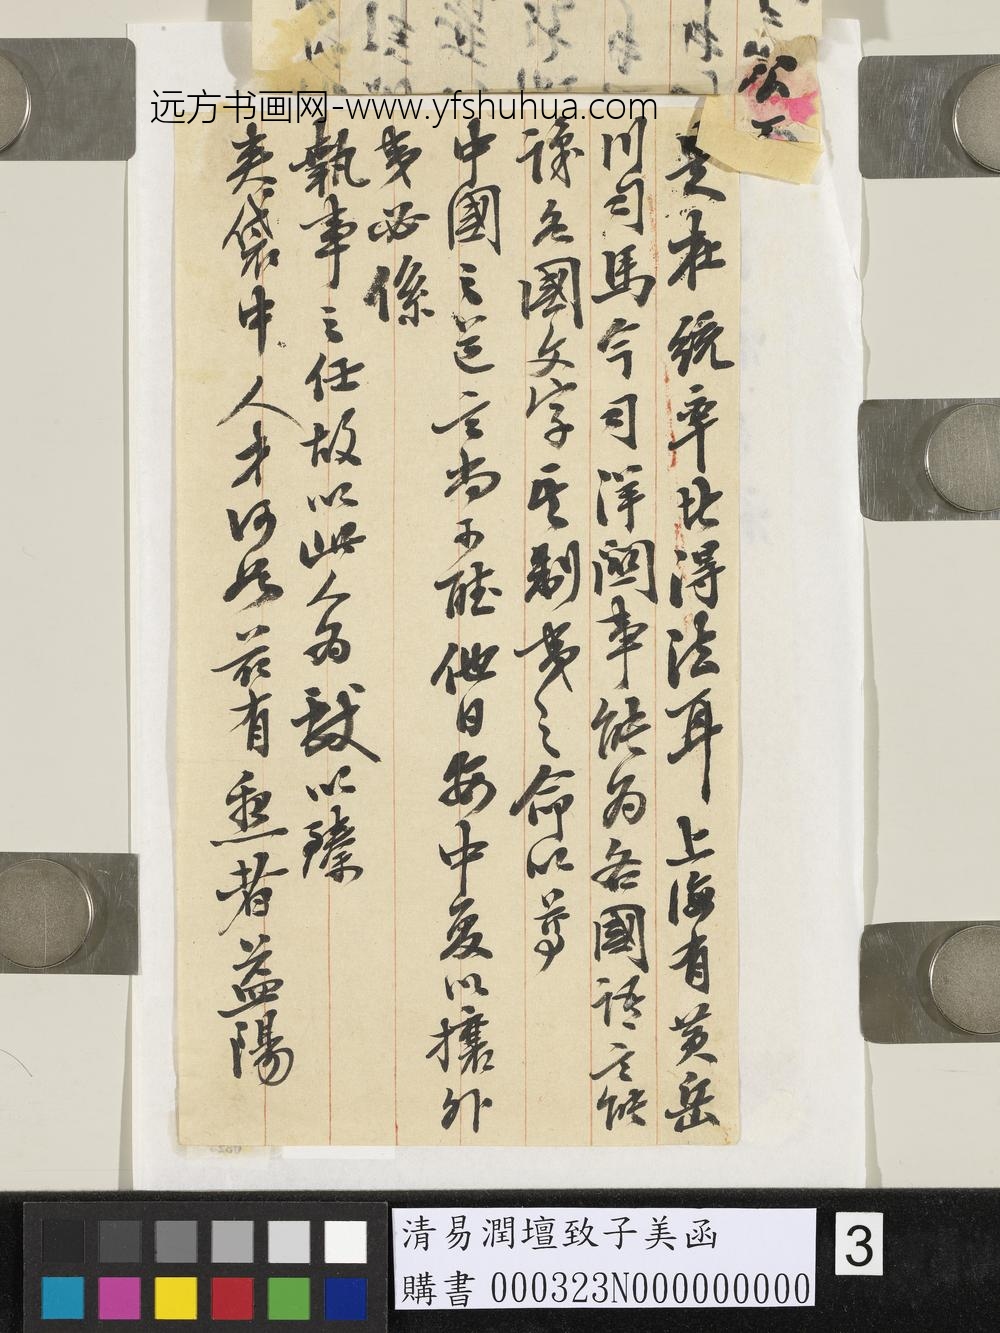 远方书画网-www.yfshuhua.com
是在統率比得法耳上海有黃岳
川司馬今司洋關事能為各國語言能
識各國文字其制夷之命以尊
中國之道言尚可聽他日安中夏以攘外
夷必係
執事之任故以此人為獻以臻
夾袋中人才何如茲有懇者益陽
清易潤壇致子美函
購書 000323N000000000
3